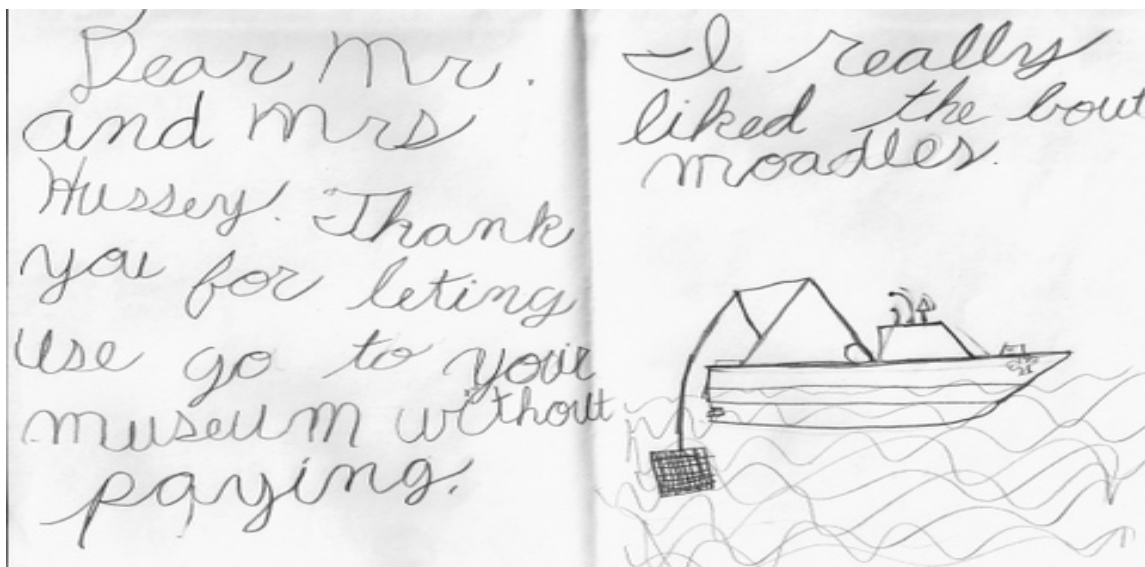 Dear Mr.
and Mrs
Hussey. Thank
you for leting
use go to your
museum without
paying.
I really
liked the bout
moadles.